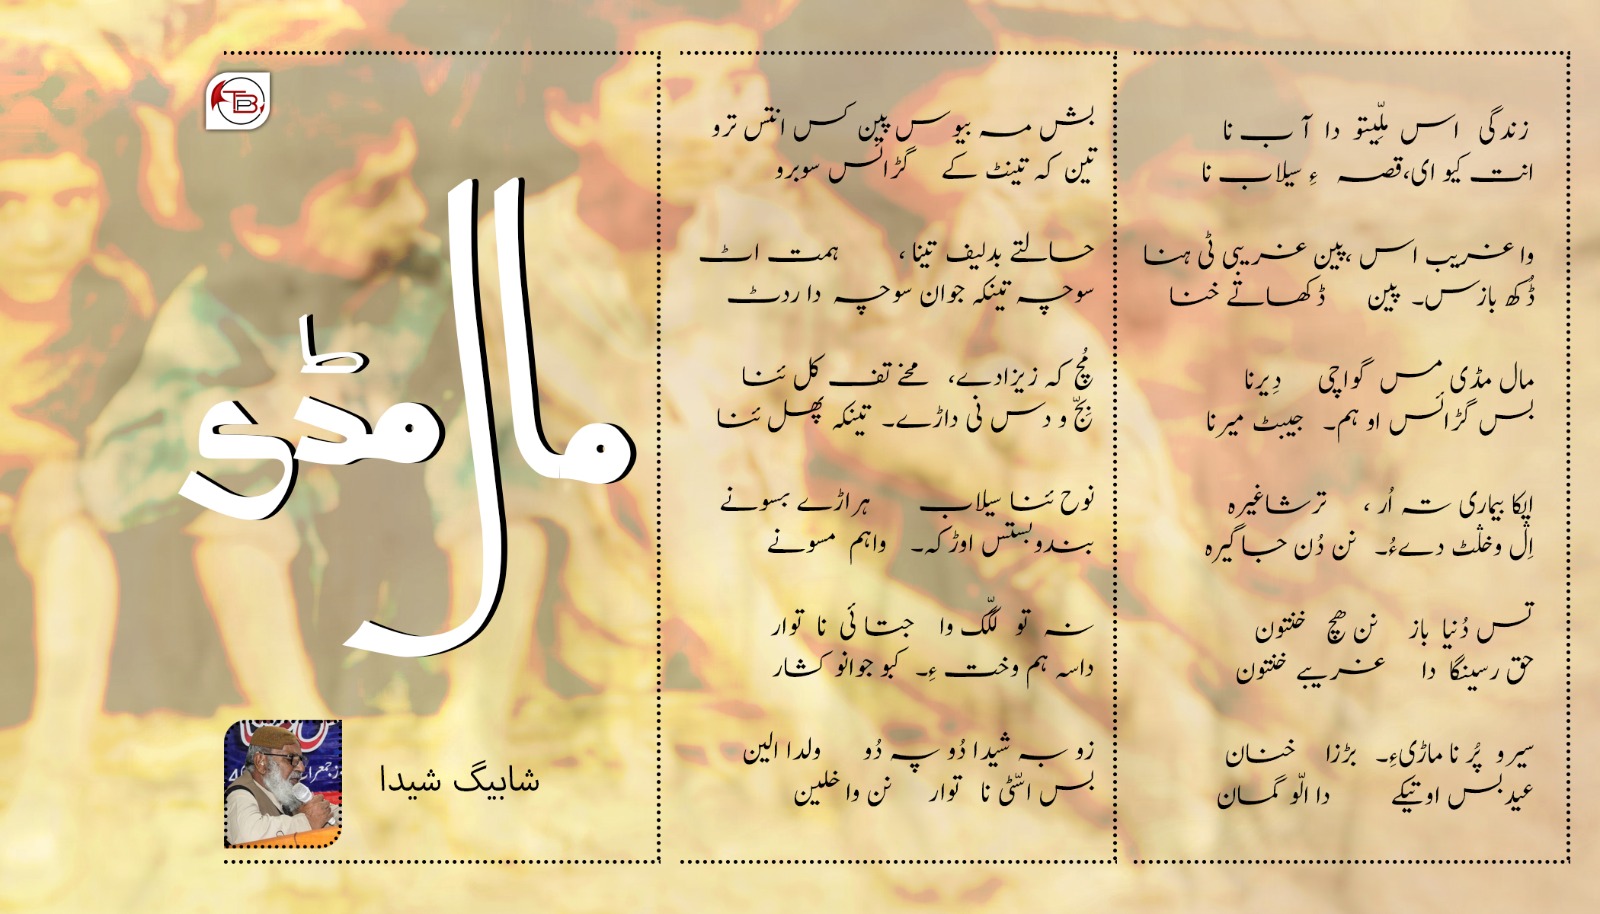 زندگی اس ملّیتو دا آب نا
انت کیو ای،قصہ ءِ سیلاب نا
وا غریب اس ،پین غریبی ٹی ہنا
ڈُکھ بازس۔ پین ڈکھاتے خنا
مال مڈی مس گواچی دِیرنا
بس گڑاس او ہم۔ جیبٹ میرنا
اِپکا بیماری تہ اُر ، ترشاغیرہ
اِل وخلٹ دےءُ۔ نن دُن جاگیرہ
تس دُنیا باز نن ھچ خنتون
حق رسینگا دا غریبے خنتون
سیر و پُر نا ماڑیءِ۔ بڑزا خنان
عید بس اوتیکے دا الّو گمان
بش مہ بیوس پین کس انتس ترو
تین کہ تینٹ کے گڑاس سوبرو
حالتے بدلیف تینا ، ہمت اٹ
سوچہ تینکہ جوان سوچہ دا ردٹ
مُچ کہ زیزادے، مخے تف کل ئنا
نچّ و دس نی داڑے۔ تینکہ پھل ئنا
نوح ئنا سیلاب ہراڑے بسونے
بندوبستس اوڑکہ۔ واہم مسونے
نہ تو لگّک وا جتائی نا توار
داسہ ہم وخت ءِ۔ کبو جوانو کشار
زو بہ شیدا دُو پہ دُو ولدا الین
بس اسّٹی نا توار نن وا خلین
مال مڈی
شابیگ شیدا
TBP